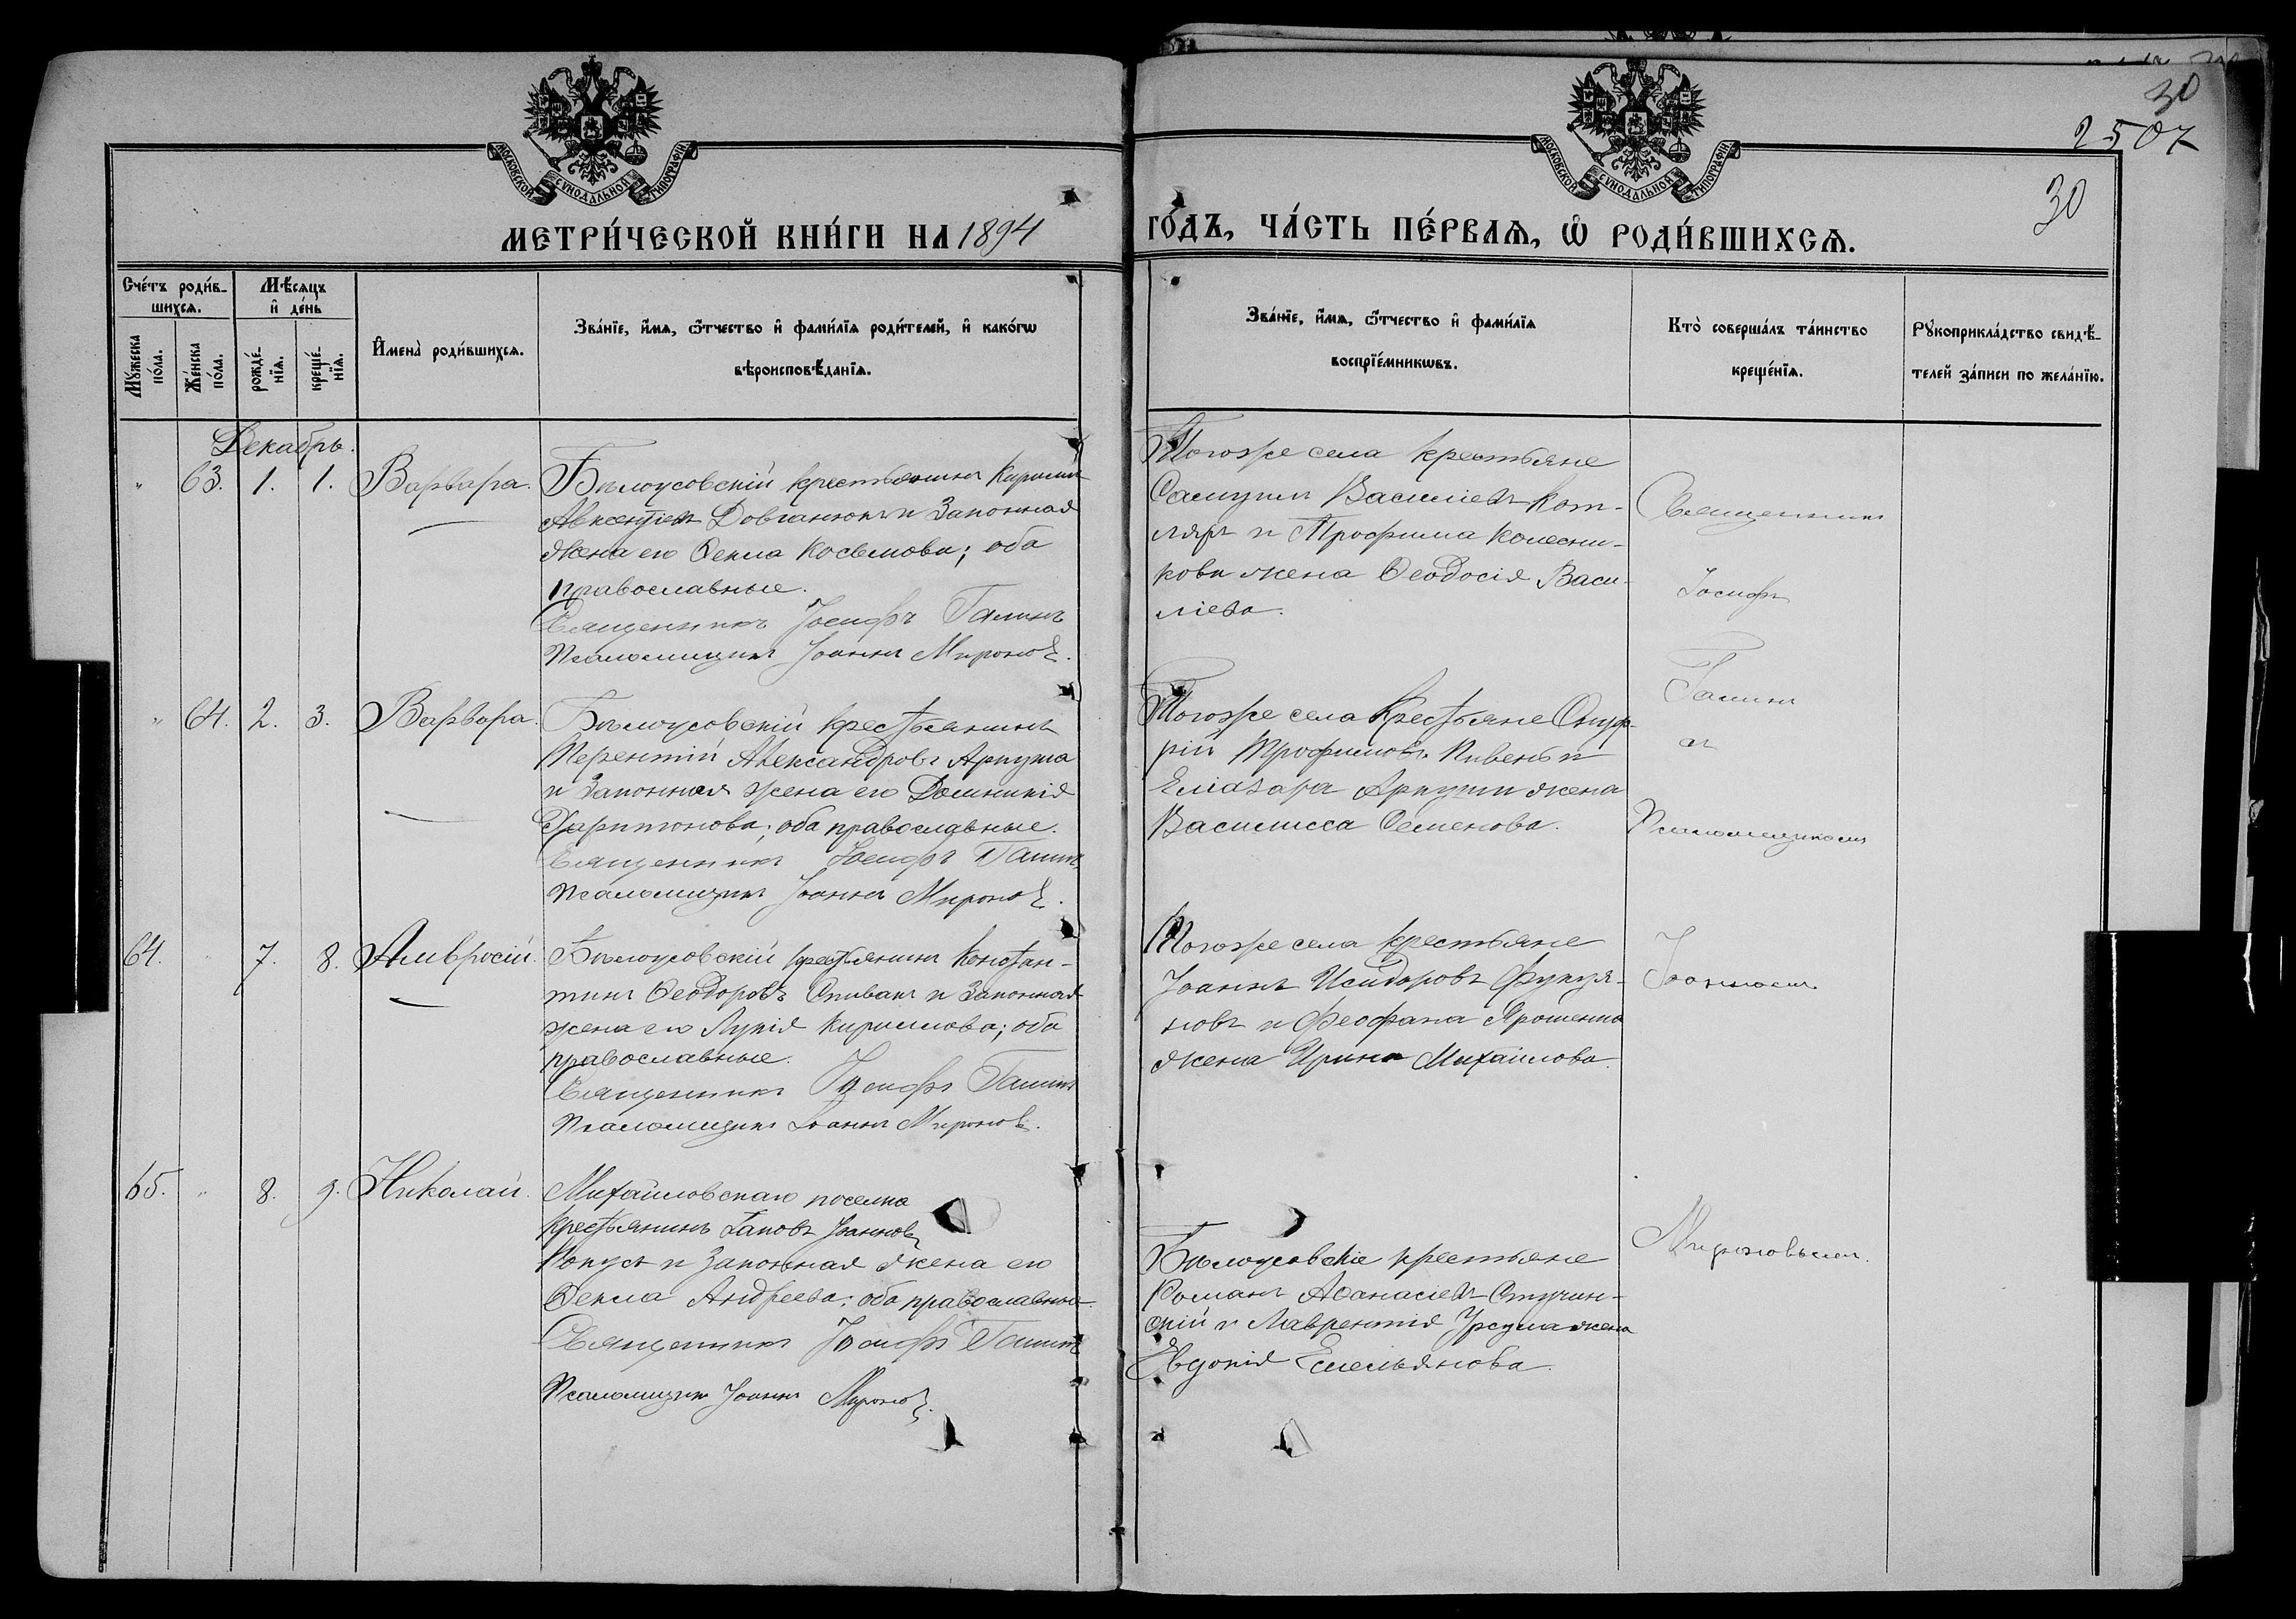 30
2507
30
МОСКОВСКОЙ СѴНОДАЛЬНОЙ ТИПОГРАФІИ
МОСКОВСКОЙ СѴНОДАЛЬНОЙ ТИПОГРАФІИ
МЕТРИ́ЧЕСКОЙ КНИ́ГИ НА 1894 ГО́ДЪ, ЧА́СТЬ ПЕ́РВАѦ, Ѡ҆ РОДИ́ВШИХСѦ.
Сче́тъ роди́в-
шихсѧ.
Мꙋ́жеска по́ла.
Же́нска по́ла.
Мѣ́сѧцъ
и҆ де́нь
рожде́-нїѧ.
креще́-нїѧ.
И҆мена̀ роди́вшихсѧ.
Зва́нїе, и҆́мѧ, ѻ҆́тчество и҆ фами́лїѧ роди́телей, и҆ како́гѡ
вѣроисповѣ́данїѧ.
Зва́нїе, и҆́мѧ, ѻ҆́тчество и҆ фами́лїѧ
воспрїе́мникѡвъ.
Кто̀ соверша́лъ та́инство
креще́нїѧ.
Рꙋкоприкла́дство свидѣ́-
телей за́писи по жела́нїю.
Декабрь.
" 63. 1. 1. Варвара.
Бѣлоусовскій крестьянинъ Кириллъ
Авксентіевъ Довганюкъ и законная
жена его Ѳекла Косьмова; оба
православные.
Священникъ Іосифъ Галинъ
Псаломщикъ Іоаннъ Мироновъ.
Тогоже села крестьяне
Самуилъ Василіевъ Кот-
ляръ и Трофима Колесни-
кова жена Ѳеодосія Васи-
ліева.
" 64. 2. 3. Варвара.
Бѣлоусовскій крестьянинъ
Терентій Александровъ Аркуша
и законная жена его Домникія
Харитонова; оба православные.
Священникъ Іосифъ Галинъ
Псаломщикъ Іоаннъ Мироновъ.
Тогоже села Крестьяне Онуф-
рій Трофимовъ Пивень и
Еліазара Аркуши жена
Василисса Семенова.
64. " 7. 8. Амвросій.
Бѣлоусовскій крестьянинъ Констан-
тинъ Ѳеодоровъ Спивакъ и законная
жена его Лукія Кириллова; оба
православные.
Священникъ Іосифъ Галинъ
Псаломщикъ Іоаннъ Мироновъ.
Тогоже села крестьяне
Іоаннъ Исидоровъ
и Феофана Ярошенка
жена Ирина Михаилова.
65. " 8. 9. Николай.
Михайловскаго поселка
крестьянинъ Іаковъ Іоанновъ
и законная жена его
Ѳекла Андреева; оба православные.
Священникъ Іосифъ Галинъ
Псаломщикъ Іоаннъ Мироновъ.
Бѣлоусовскіе крестьяне
Романъ Аѳанасіевъ Стучин-
скій и Лаврентія Урсула жена
Евдокія Емельянова.
Священникъ
Іосифъ
Галинъ
съ
Псаломщикомъ
Іоанномъ
Мироновымъ.